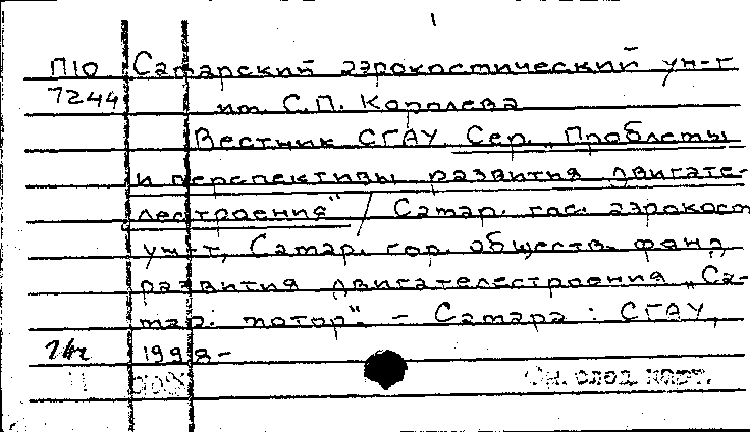 1
П10 Самарский аэрокосмический ун-т
7244 им. С.П. Королева
Вестник СГАУ. Сер. „Проблемы
и перспективы развития двигате-
лестроения" / Самар. гос. аэрокосм.
ун-т, Самар. гор. обществ. фонд
развития двигателестроения „Са-
мар. мотор". - Самара : СГАУ,
1998-
См. след. карт.